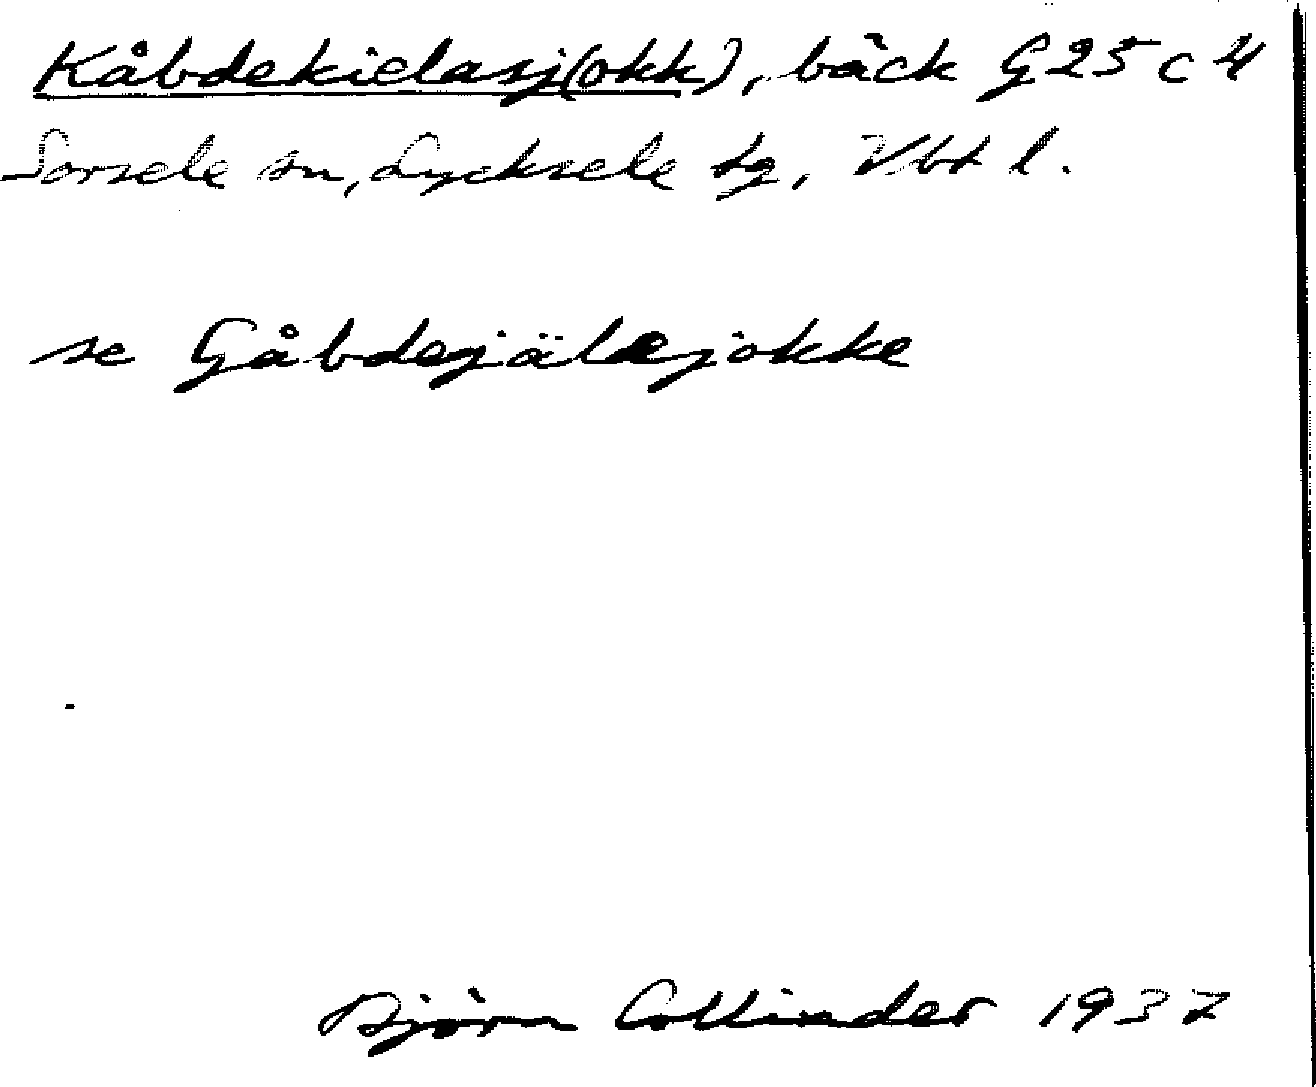 Kåbdekielasj(okk), bäck G25c4
Sorsele sn, Lycksele tg, Vbt l.
se Gåbdesjälejokke
Björn Collinder 1937